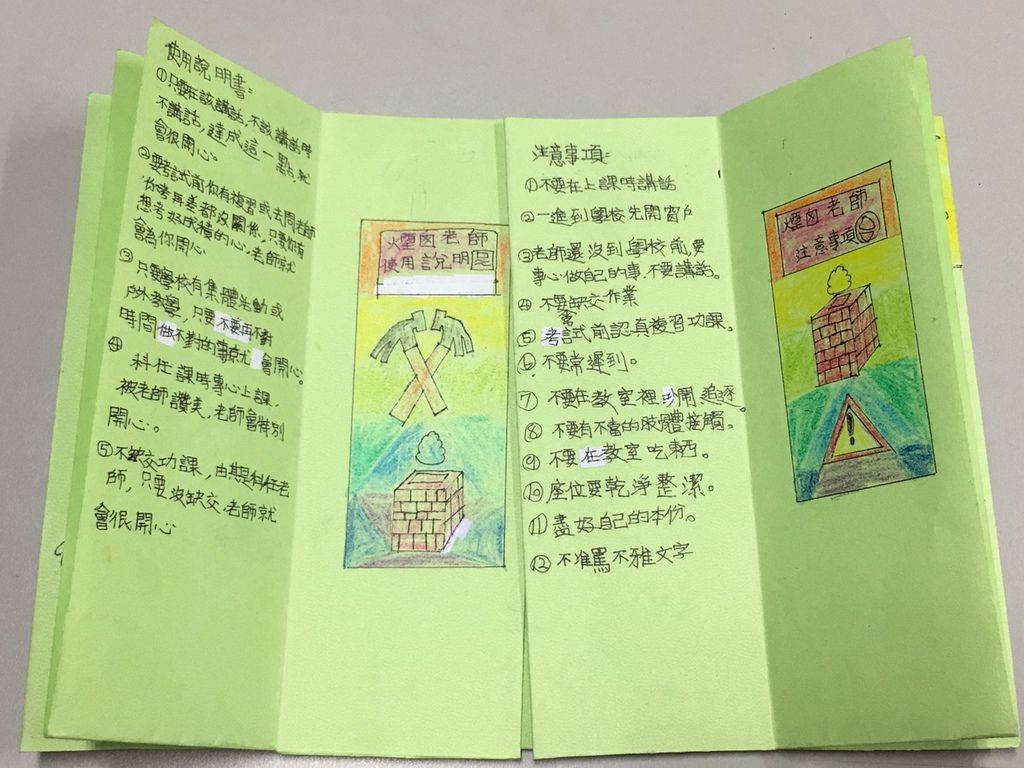 使用說明書:
①只要在該講話,不該講話時
不講話,達成這一點,就
會很開心
②要考試前你有複習或去問老師
你考再差都沒關係,只要你有
想考好成積的心,老師就
會為你開心
③只要學校有集體活動或
戶外教學,只要不要再不對
時間做不對的事就會開心。
④科任課時專心上課,
被老師讚美,老師會特別
開心。
⑤不缺交功課,由其是科任老
師,只要沒缺交,老師就
會很開心
煙囪老師
使用說明
注意事項:
①不要在上課時講話
②一進到學校先開窗戶
③老師還沒到學校前,要
專心做自己的事,不要講話。
④不要缺交作業
⑤考試前認真複習功課。
⑥不要常遲到。
⑦不要在教室裡 追逐。
⑧不要有不當的肢體接觸。
⑨不要在教室吃東西。
⑩座位要乾淨整潔。
⑪盡好自己的本份。
⑫不准罵不雅文字
煙囪老師
注意事項㊀